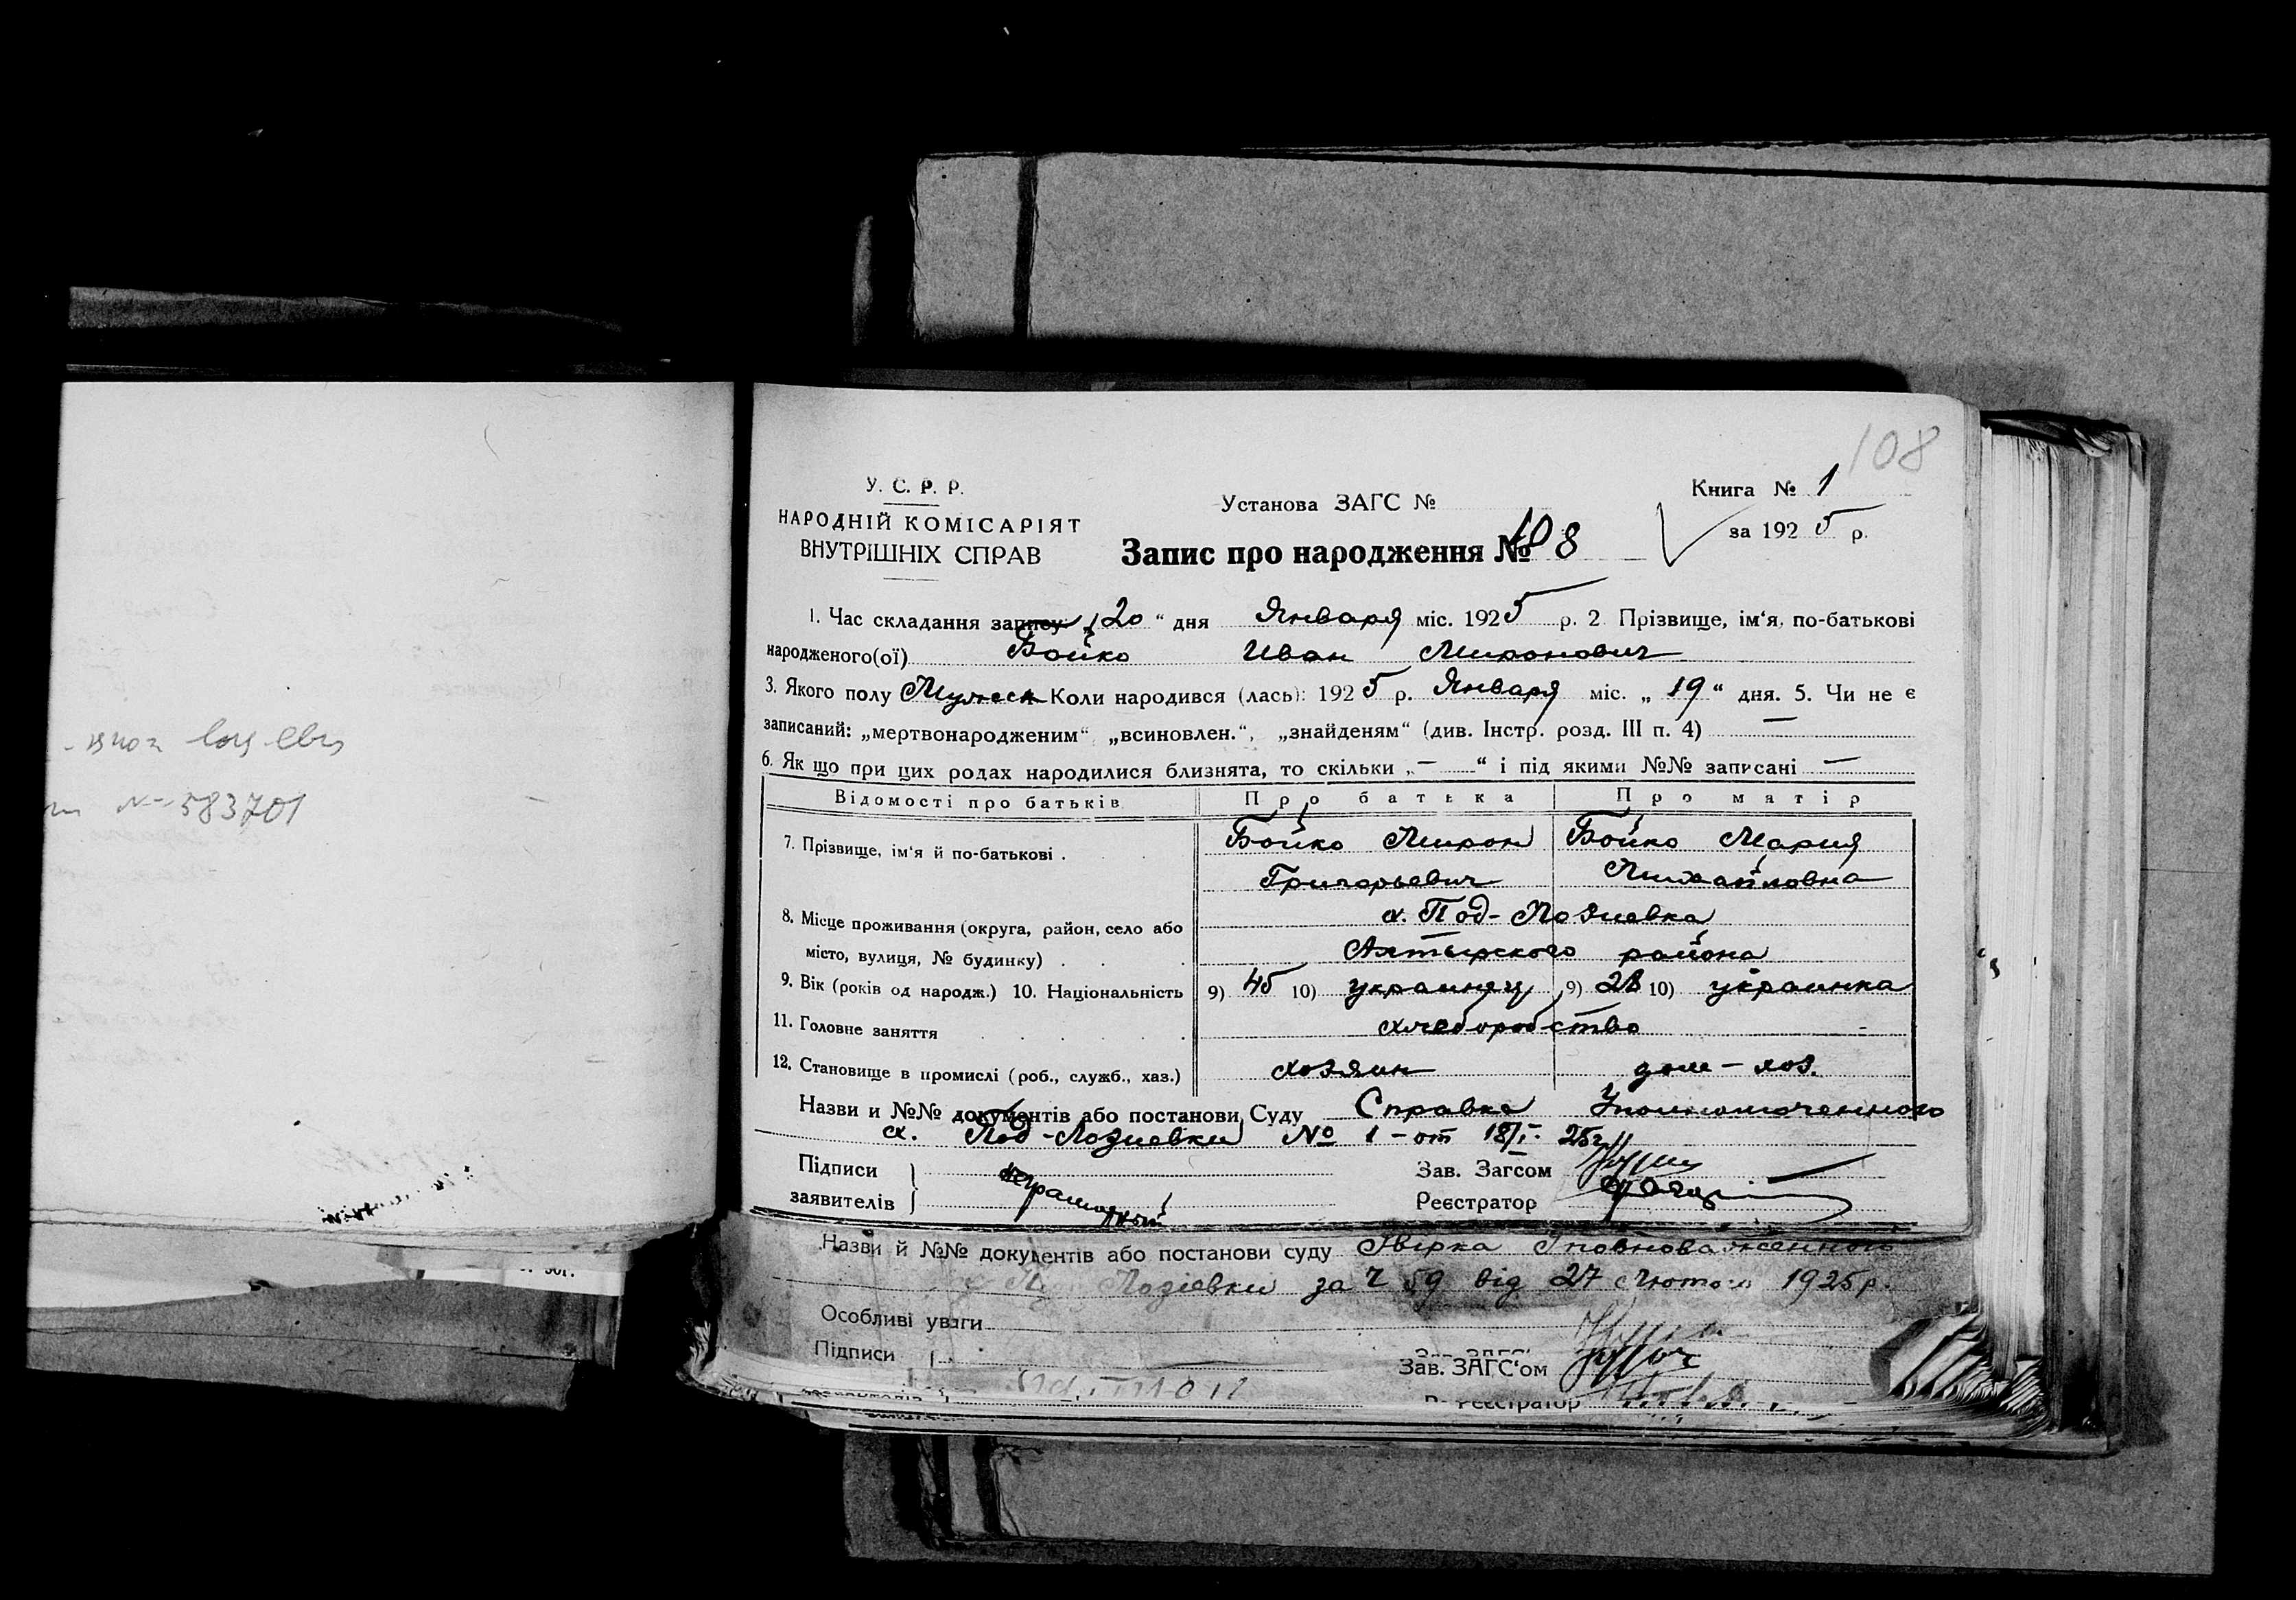 108
У. С. Р. Р.
НАРОДНІЙ КОМІСАРІЯТ
ВНУТРІШНІХ СПРАВ
Установа ЗАГС №
Книга № 1
за 1925 р.
Запис про народження № 108
1. Час складання запису: „20“ дня Января міс. 1925 р. 2. Прізвище, ім‘я, по-батькові
народженого(ої) Бойко Иван Миронович
3. Якого полу Мужеск Коли народився (лась): 1925 р. Января міс. „19“ дня. 5. Чи не є
записаний: „мертвонародженим“ „всиновлен.“, „знайденям“ (див. Інстр. розд. III п. 4) —
6. Як що при цих родах народилися близнята, то скільки „—“ і під якими №№ записані —
Відомості про батьків Про батька Про матір
7. Прізвище, ім‘я й по-батькові . Бойко Мирон Бойко Мария
Григорьевич Михайловна
8. Місце проживання (округа, район, село або х. Под-Лозиевка
місто, вулиця, № будинку) . . . Ахтырского района
9. Вік (років од народж.) 10. Національність 9) 45 10) украинец 9) 28 10) украинка
11. Головне заняття хлеборобство
12. Становище в промислі (роб., служб., хаз.) хозяин дом-хоз.
Назви и №№ документів або постанови Суду Справка Уполномоченного
х. Под-Лозиевки № 1 - от 18/I- 25г
Підписи
заявителів
неграмотный
Зав. Загсом
Реєстратор
Назви й №№ документів або постанови суду Звірка Уповноваженного
х. Лозіевки за Ч 59 від 27 Лютого 1925 р.
Особливі уваги
Підписи
Зав. ЗАГС‘ом
Реєстратор
№ 583701